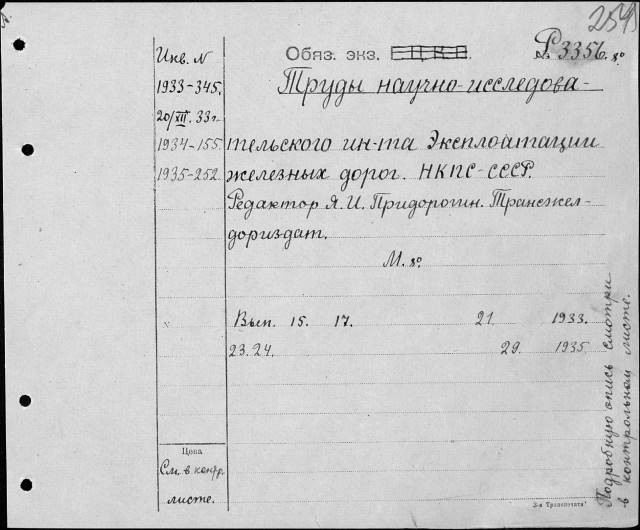 254
Инв. N
1933-345.
20/XII.33г.
1934-155.
1935-252.
Обяз. экз. Е.Ц.К.П.
Р 3356. 8°
Труды научно-исследова-
тельского ин-та Эксплоатации
железных дорог. НКПС-СССР.
Редактор Я.И. Придорогин. Трансжел-
дориздат.
М. 8°
Вып. 15. 17. 21. 1933.
23.24. 29. 1935
Цена
См. в контр.
листе.
Подробную опись смотри
в контрольном листе.
3-я Транспечать